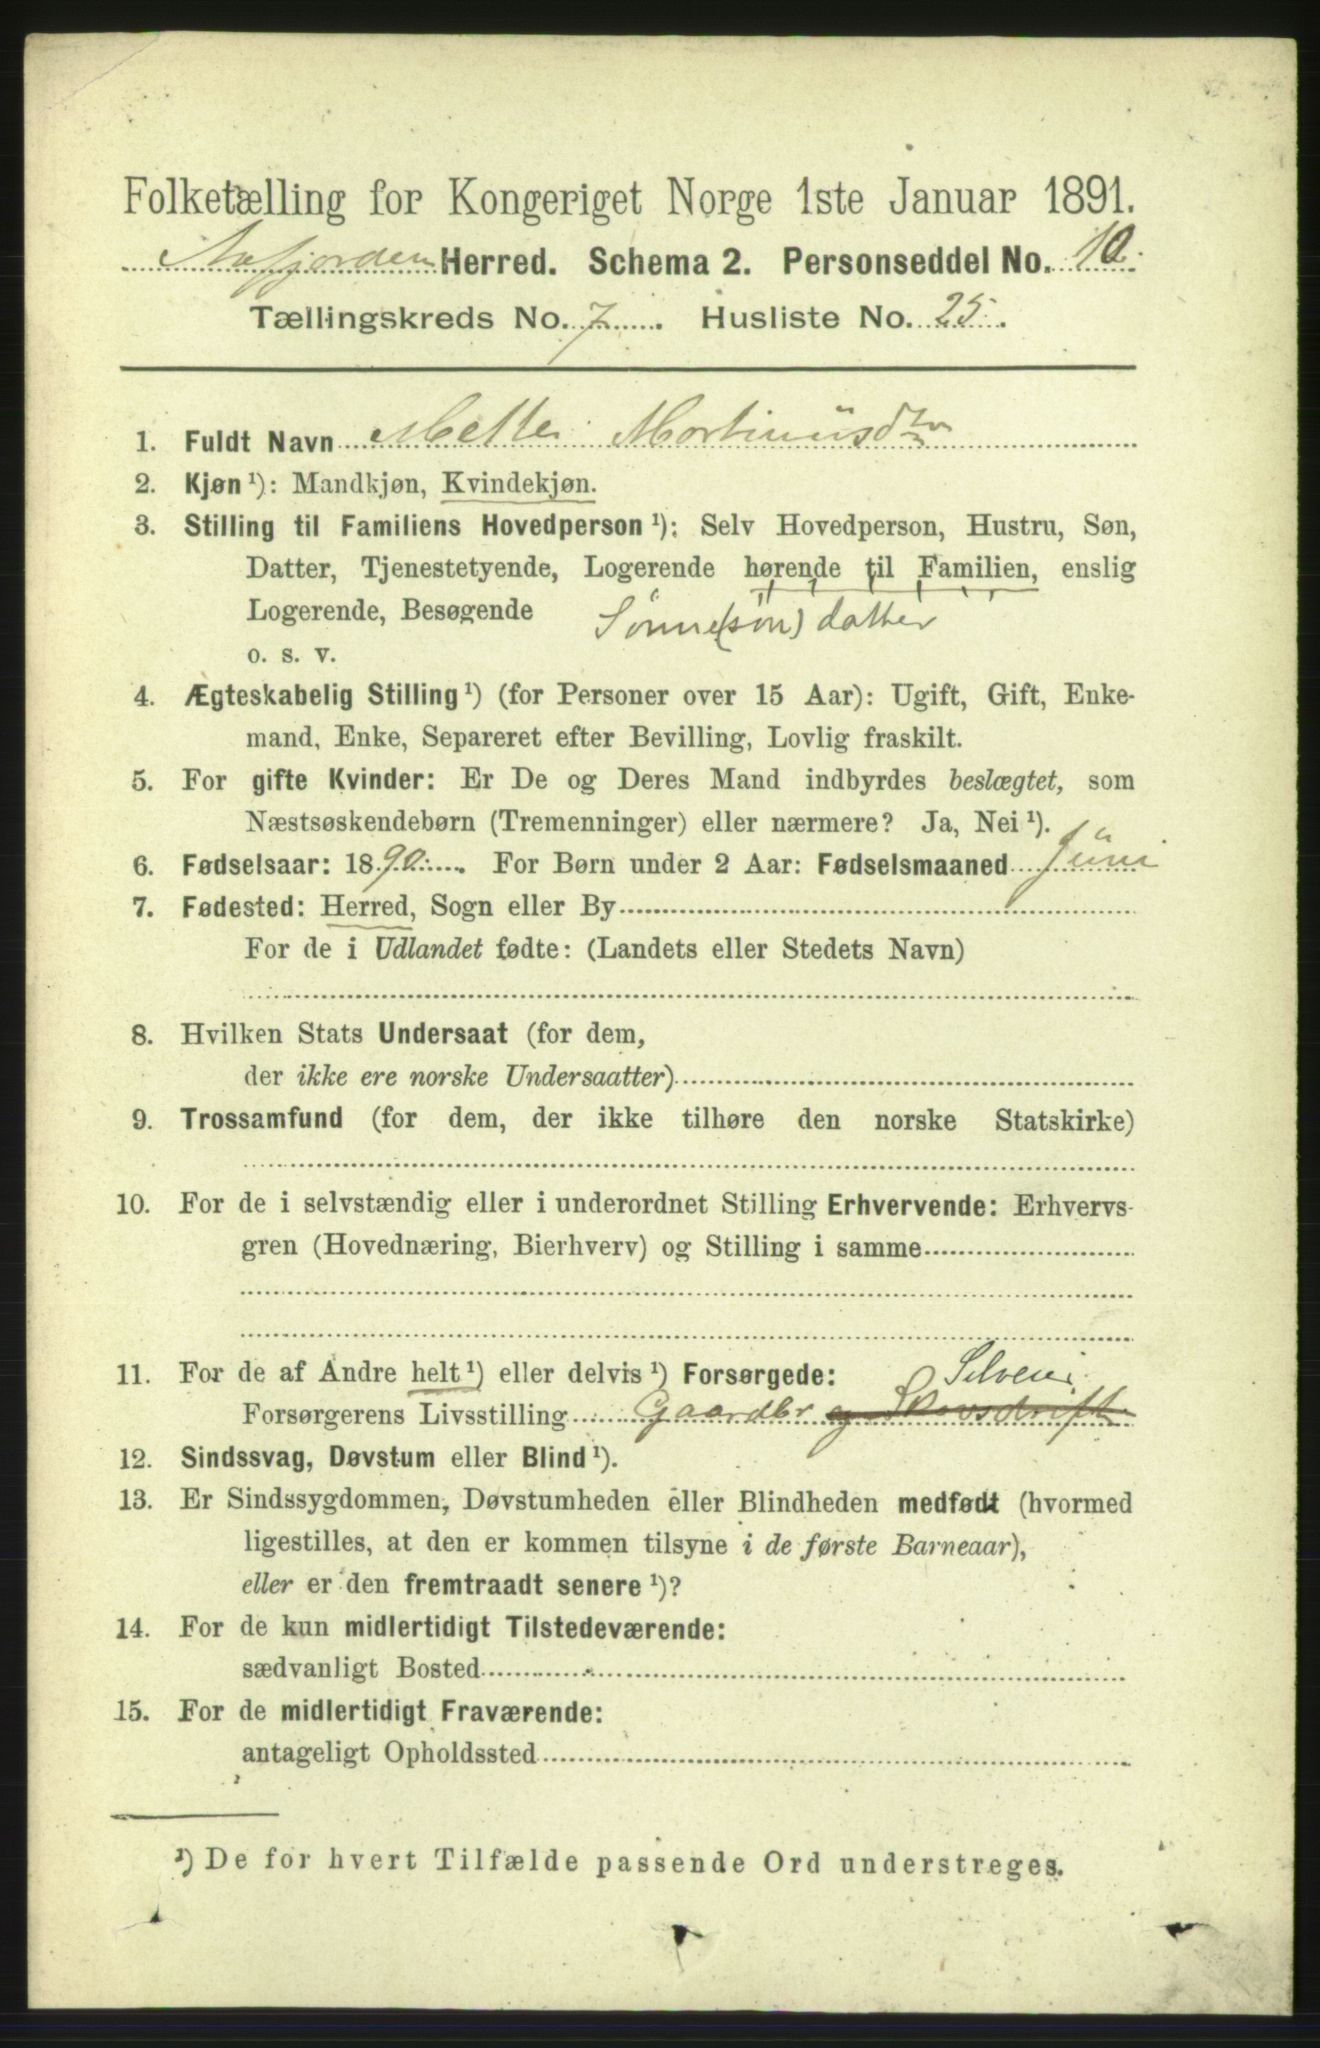 Folketælling for Kongeriget Norge 1ste Januar 1891.
Aafjorden Herred. Schema 2. Personseddel No. 10.
Tællingskreds No. 7. Husliste No. 25.
1. Fuldt Navn Mette Martinusdtr
2. Kjøn ¹): Mandkjøn, Kvindekjøn.
3. Stilling til Familiens Hovedperson ¹): Selv Hovedperson, Hustru, Søn,
Datter, Tjenestetyende, Logerende hørende til Familien, enslig
Logerende, Besøgende Sönne(sön)datter
o. s. v.
4. Ægteskabelig Stilling ¹) (for Personer over 15 Aar): Ugift, Gift, Enke-
mand, Enke, Separeret efter Bevilling, Lovlig fraskilt.
5. For gifte Kvinder: Er De og Deres Mand indbyrdes beslægtet, som
Næstsøskendebørn (Tremenninger) eller nærmere? Ja, Nei ¹).
6. Fødselsaar: 1890. For Børn under 2 Aar: Fødselsmaaned Juni
7. Fødested: Herred, Sogn eller By
For de i Udlandet fødte: (Landets eller Stedets Navn)
8. Hvilken Stats Undersaat (for dem,
der ikke ere norske Undersaatter)
9. Trossamfund (for dem, der ikke tilhøre den norske Statskirke)
10. For de i selvstændig eller i underordnet Stilling Erhvervende: Erhvervs-
gren (Hovednæring, Bierhverv) og Stilling i samme
11. For de af Andre helt ¹) eller delvis ¹) Forsørgede: Selveier
Forsørgerens Livsstilling Gaardbr og Skovsdrift
12. Sindssvag, Døvstum eller Blind ¹).
13. Er Sindssygdommen, Døvstumheden eller Blindheden medfødt (hvormed
ligestilles, at den er kommen tilsyne i de første Barneaar),
eller er den fremtraadt senere ¹)?
14. For de kun midlertidigt Tilstedeværende:
sædvanligt Bosted
15. For de midlertidigt Fraværende:
antageligt Opholdssted
¹) De for hvert Tilfælde passende Ord understreges.